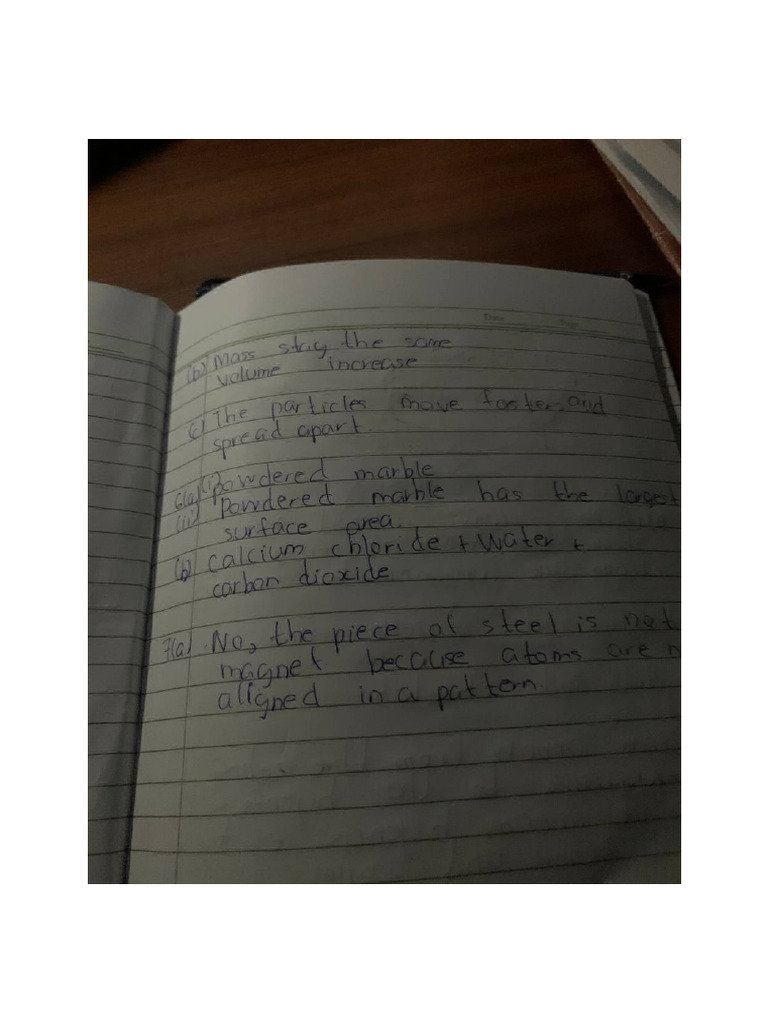 Date Page
(b) Mass stay the same
volume increase
(c) The particles move faster, and
spread apart
6(a)(i) powdered marble
(ii) Powdered marble has the largest
surface area.
(b) calcium chloride + Water +
carbon dioxide
7(a) No, the piece of steel is not
magnet because atoms are
aligned in a pattern.